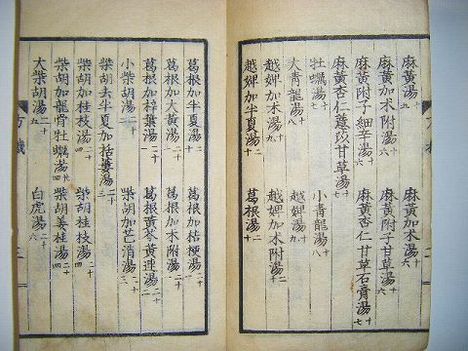 麻黄湯十五 麻黄加朮湯十六
麻黄加朮附湯十六 麻黄附子甘草湯十六
麻黄附子細辛湯十六 麻黄杏仁甘草石膏湯十七
麻黄杏仁薏苡甘草湯十七
牡蠣湯十七 小青龍湯十八
大青龍湯十七 越婢湯十九
越婢加朮湯十九 越婢加朮附湯
越婢加半夏湯二十 葛根湯二十
葛根加半夏湯二十一 葛根加桔梗湯二十一
葛根加大黄湯二十一 葛根加朮附湯二十一
葛根加梓葉湯二十二 葛根黄芩黄連湯二十二
小柴胡湯二十二 柴胡加芒消湯二十三
柴胡去半夏加栝蔞湯二十三
柴胡加桂枝湯二十四 柴胡桂枝湯二十四
柴胡加龍骨牡蠣湯二十四 柴胡姜桂湯二十四
大柴胡湯二十五 白虎湯二十六
方機